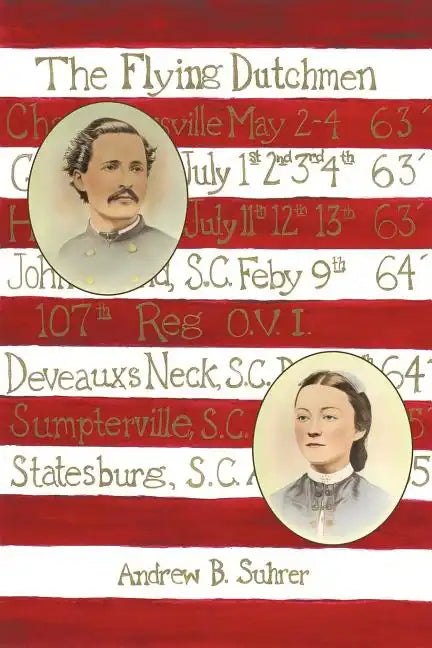 The Flying Dutchmen
May 2-4 63´
July 1st 2nd 3rd 4th 63´
July 11th 12th 13th 63´
S.C. Feby 9th 64´
107th Reg O.V.I.
Deveauxs Neck, S.C. 64´
Sumpterville, S.C.
Statesburg, S.C.
Andrew B. Suhrer